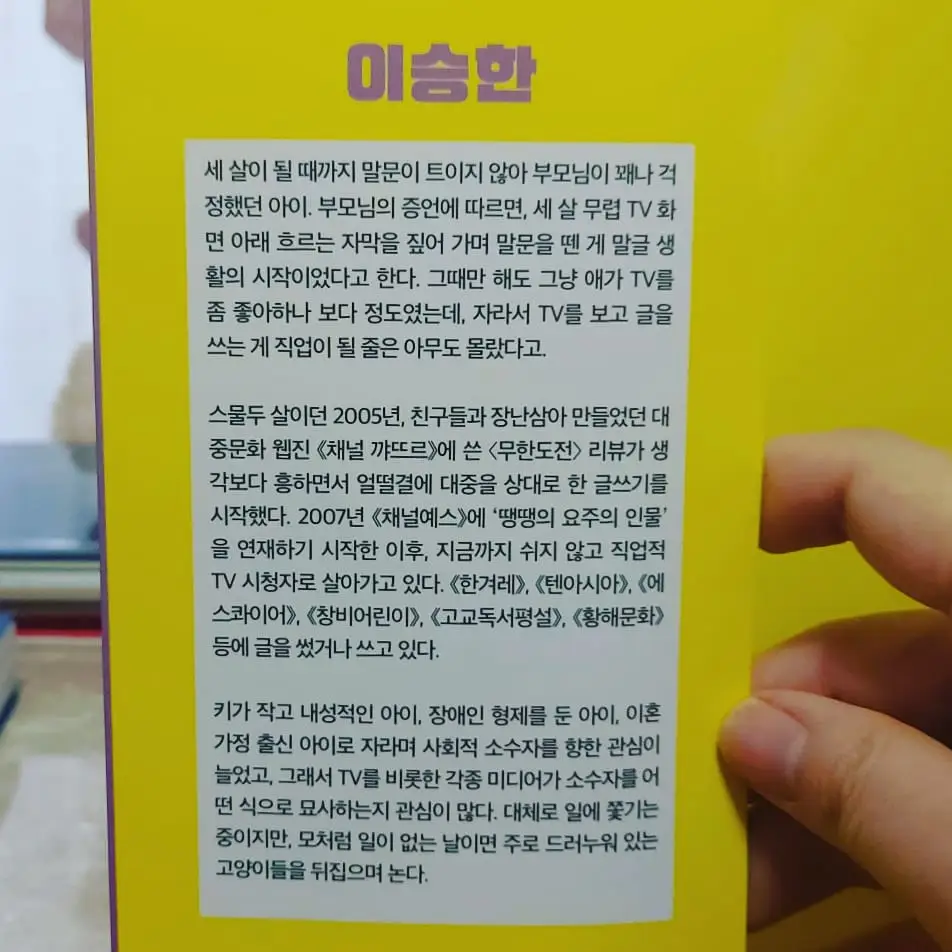 이승한
세 살이 될 때까지 말문이 트이지 않아 부모님이 꽤나 걱
정했던 아이. 부모님의 증언에 따르면, 세 살 무렵 TV 화
면 아래 흐르는 자막을 짚어 가며 말문을 뗀 게 말글 생
활의 시작이었다고 한다. 그때만 해도 그냥 애가 TV를
좀 좋아하나 보다 정도였는데, 자라서 TV를 보고 글을
쓰는 게 직업이 될 줄은 아무도 몰랐다고.
스물두 살이던 2005년, 친구들과 장난삼아 만들었던 대
중문화 웹진 《채널 꺄뜨르》에 쓴 〈무한도전〉 리뷰가 생
각보다 흥하면서 얼떨결에 대중을 상대로 한 글쓰기를
시작했다. 2007년 《채널예스》에 ‘땡땡의 요주의 인물’
을 연재하기 시작한 이후, 지금까지 쉬지 않고 직업적
TV 시청자로 살아가고 있다. 《한겨레》, 《텐아시아》, 《에
스콰이어》, 《창비어린이》, 《고교독서평설》, 《황해문화》
등에 글을 썼거나 쓰고 있다.
키가 작고 내성적인 아이, 장애인 형제를 둔 아이, 이혼
가정 출신 아이로 자라며 사회적 소수자를 향한 관심이
늘었고, 그래서 TV를 비롯한 각종 미디어가 소수자를 어
떤 식으로 묘사하는지 관심이 많다. 대체로 일에 쫓기는
중이지만, 모처럼 일이 없는 날이면 주로 드러누워 있는
고양이들을 뒤집으며 논다.